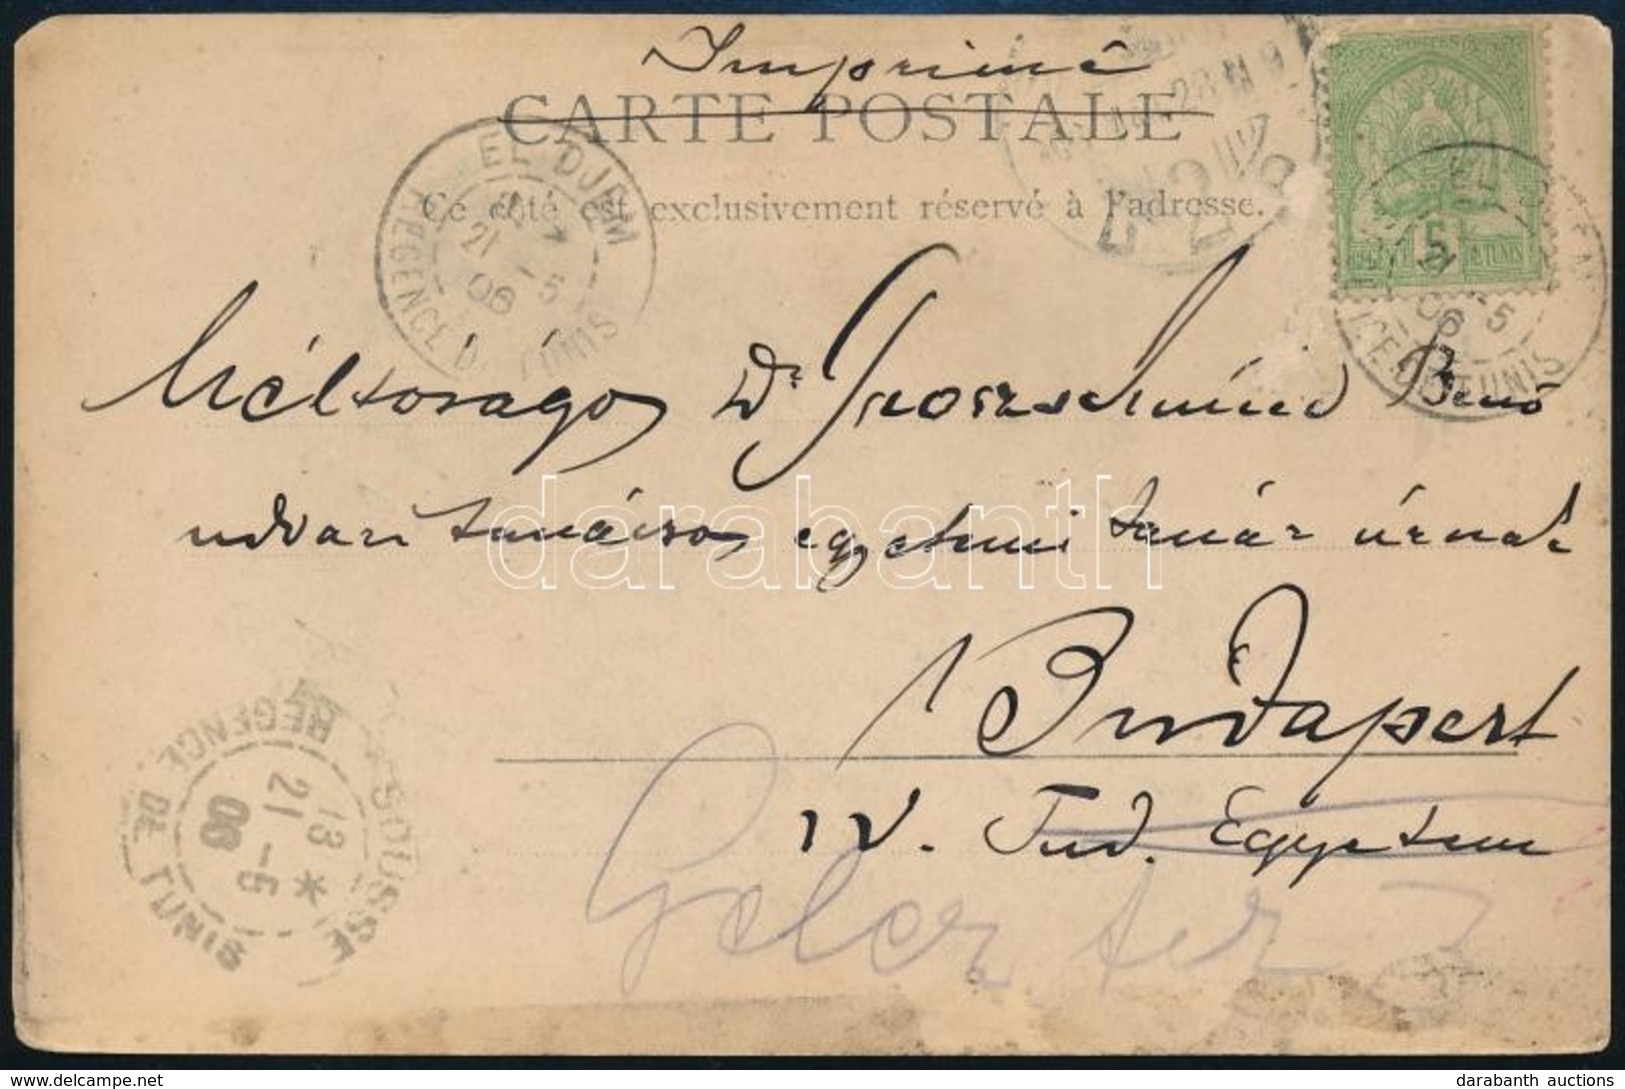 Imprimé
CARTE POSTALE
Ce côté est exclusivement réservé à l'adresse.
EL DJEM
21 -5
06
REGENCE DE TUNIS
POSTES
5
21 -5
06
REGENCE DE TUNIS
Méltóságos Dr Groszschmid Benő
udvari tanácsos egyetemi tanár úrnak
Budapest
IV. Tud. Egyetem
SOUSSE
13
21 -5
06
REGENCE DE TUNIS
darabanth
darabanth auctions